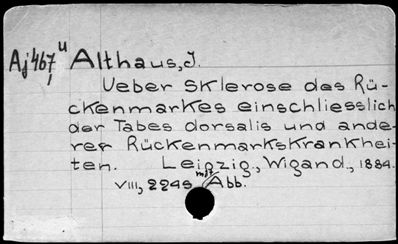 Aj 467, u Althaus, J.
Ueber Sklerose des Rü-
ckenmarkes einschliesslich
der Tabes dorsalis und ande-
rer Rückenmarkskrankhei-
ten. Leipzig, Wigand, 1884.
VIII, 224s mit Abb.